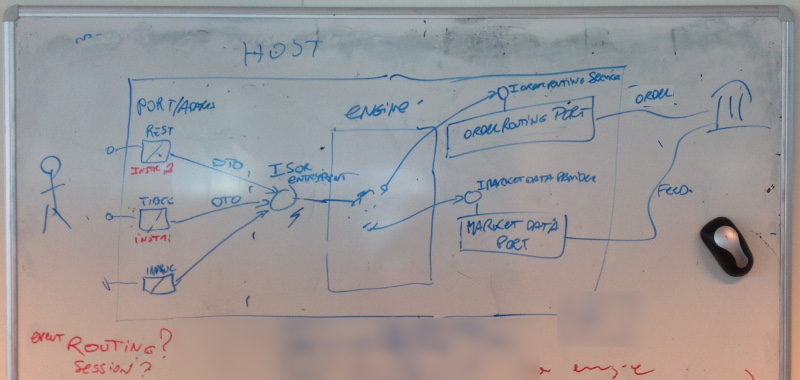 HOST
PORT/ADAPTERS
ENGINE
IORDERROUTING SERVICE
ORDER
ORDER ROUTING PORT
REST
INSTR. 2
DTO
ISOR ENTRYPOINT
IMARKETDATAPROVIDER
TIBCO
DTO
INSTR.
FEED
MARKET DATA
PORT
EVENT ROUTING?
SESSION?
engine